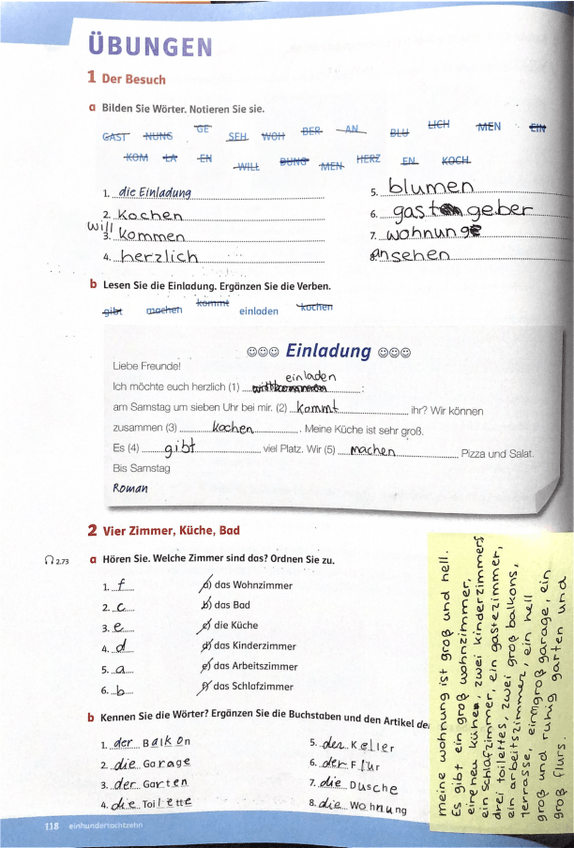 ÜBUNGEN
1 Der Besuch
a Bilden Sie Wörter. Notieren Sie sie.
GAST NUNG GE SEH WOH BER AN BLU LICH MEN EIN
KOM LA EN WILL DUNG MEN HERZ EN KOCH
1. die Einladung
2. kochen
will
3. kommen
4. herzlich
5. blumen
6. gast geber
7. wohnung
ansehen
b Lesen Sie die Einladung. Ergänzen Sie die Verben.
gibt machen kommt einladen kochen
☺☺☺ Einladung ☺☺☺
Liebe Freunde!
einladen
Ich möchte euch herzlich (1) :
am Samstag um sieben Uhr bei mir. (2) kommt ihr? Wir können
zusammen (3) kochen. Meine Küche ist sehr groß.
Es (4) gibt viel Platz. Wir (5) machen Pizza und Salat.
Bis Samstag
Roman
2 Vier Zimmer, Küche, Bad
2.73 a Hören Sie. Welche Zimmer sind das? Ordnen Sie zu.
1. f a) das Wohnzimmer
2. c b) das Bad
3. e c) die Küche
4. d d) das Kinderzimmer
5. a e) das Arbeitszimmer
6. b f) das Schlafzimmer
b Kennen Sie die Wörter? Ergänzen Sie die Buchstaben und den Artikel de
1. der Balkon
2. die Garage
3. der Garten
4. die Toilette
5. der Keller
6. der Flur
7. die Dusche
8. die Wohnung
118 einhundertachtzehn
meine wohnung ist groß und hell.
Es gibt ein groß wohnzimmer,
eine neu kühen, zwei kinderzimmers
ein schlafzimmer, ein gastezimmer,
drei toilettes, zwei groß balkons,
ein arbeitszimmer, ein hell
terrasse, ein groß garage, ein
groß und ruhig garten und
groß flurs.